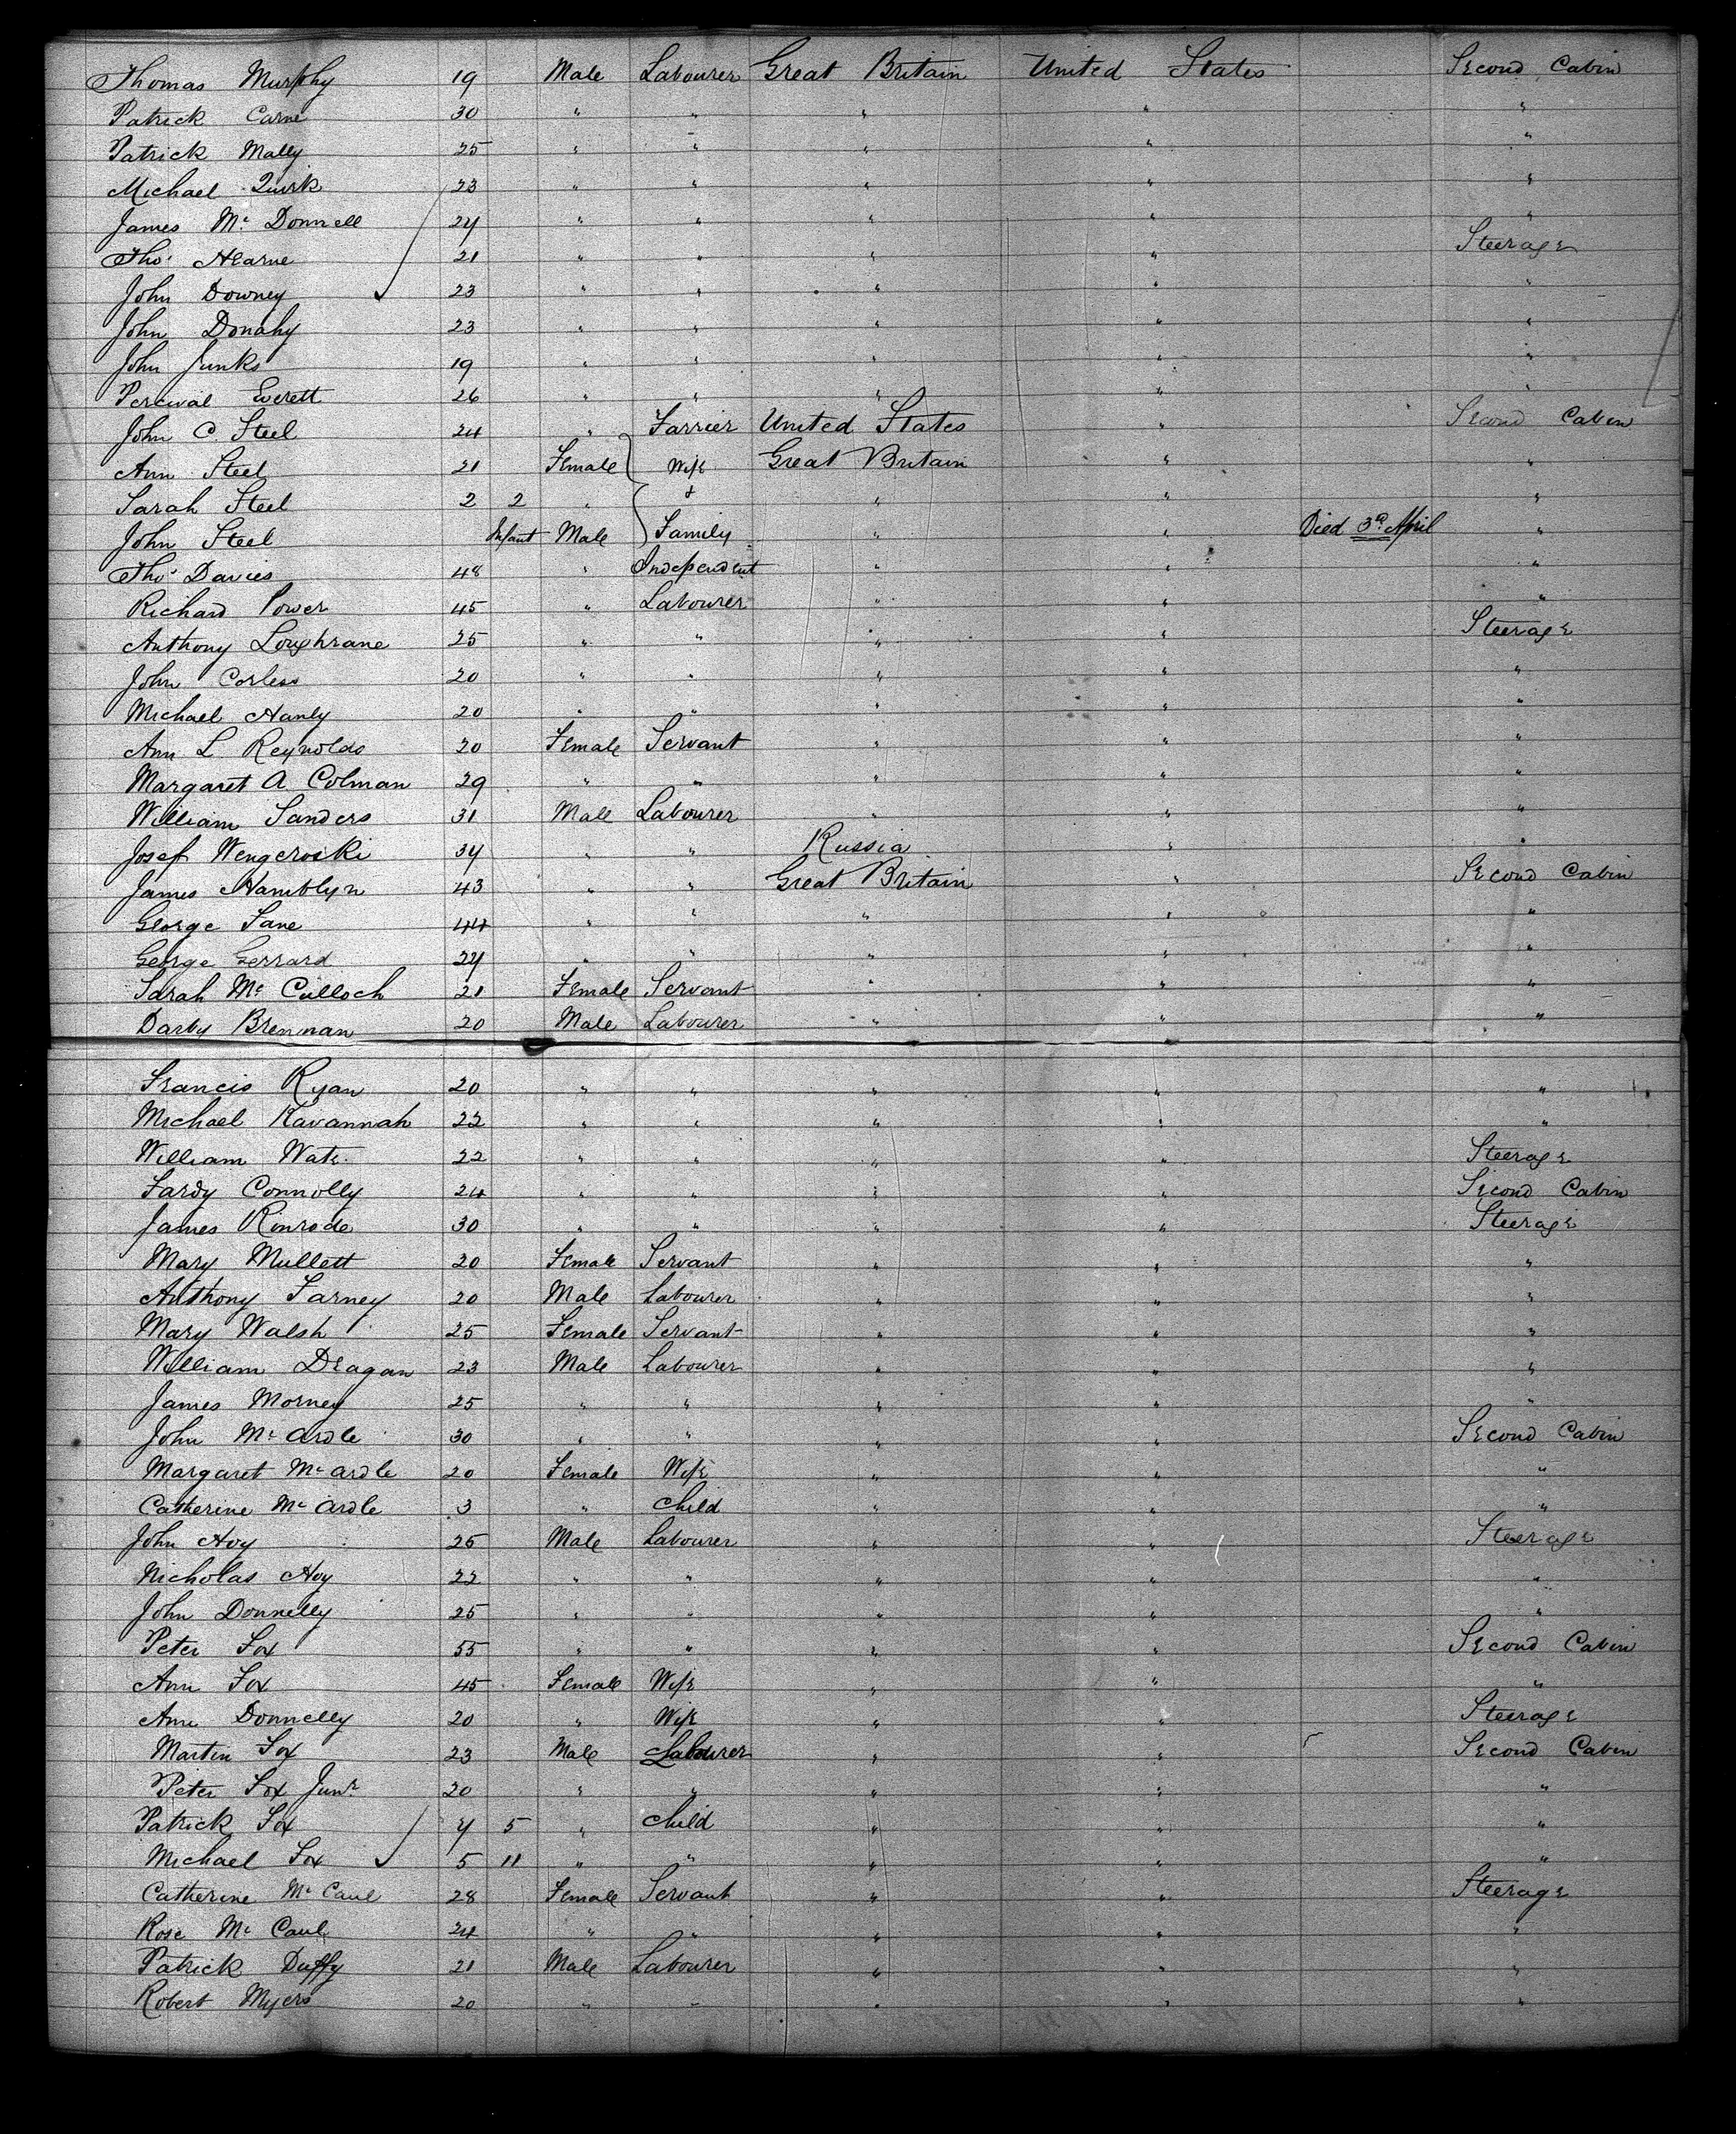 Thomas Murphy 19 Male Labourer Great Britain United States Second Cabin
Patrick Carne 30 " " " " "
Patrick Mally 25 " " " " "
Michael Quirk 23 " " " " "
James Mc Donnell 24 " " " " "
Thos Hearne 21 " " " " Steerage
John Downey 23 " " " " "
John Donahy 23 " " " " "
John Junks 19 " " " " "
Percival Everett 26 " " " " "
John C Steel 24 " Farrier United States " Second Cabin
Ann Steel 21 Female Wife Great Britain " "
Sarah Steel 2 2 " & " " "
John Steel Infant Male Family " " Died 3d April "
Thos Davies 48 " Independent " " "
Richard Power 45 " Labourer " " "
Anthony Loughrane 25 " " " " Steerage
John Corless 20 " " " " "
Michael Hanly 20 " " " " "
Ann L Reynolds 20 Female Servant " " "
Margaret A Colman 29 " " " " "
William Sanders 31 Male Labourer " " "
Josef Wengeroski 34 " " Russia " "
James Hamblyn 43 " " Great Britain " Second Cabin
George Lane 44 " " " " "
George Gerrard 24 " " " " "
Sarah Mc Culloch 21 Female Servant " " "
Darby Brennan 20 Male Labourer " " "
Francis Ryan 20 " " " " "
Michael Kavannah 22 " " " " "
William Wate 22 " " " " Steerage
Fardy Connolly 24 " " " " Second Cabin
James Kinrode 30 " " " " Steerage
Mary Mullett 20 Female Servant " " "
Anthony Farney 20 Male Labourer " " "
Mary Walsh 25 Female Servant " " "
William Deagan 23 Male Labourer " " "
James Morney 25 " " " " "
John Mc Ardle 30 " " " " Second Cabin
Margaret Mc Ardle 20 Female Wife " " "
Catherine Mc Ardle 3 " Child " " "
John Hoy 25 Male Labourer " " Steerage
Nicholas Hoy 22 " " " " "
John Donnelly 25 " " " " "
Peter Fox 55 " " " " Second Cabin
Ann Fox 45 Female Wife " " "
Ann Donnelly 20 " Wife " " Steerage
Martin Fox 23 Male Labourer " " Second Cabin
Peter Fox Junr 20 " " " " "
Patrick Fox 4 5 " Child " " "
Michael Fox 5 11 " " " " "
Catherine Mc Caul 28 Female Servant " " Steerage
Rose Mc Caul 24 " " " " "
Patrick Duffy 21 Male Labourer " " "
Robert Myers 20 " " " " "